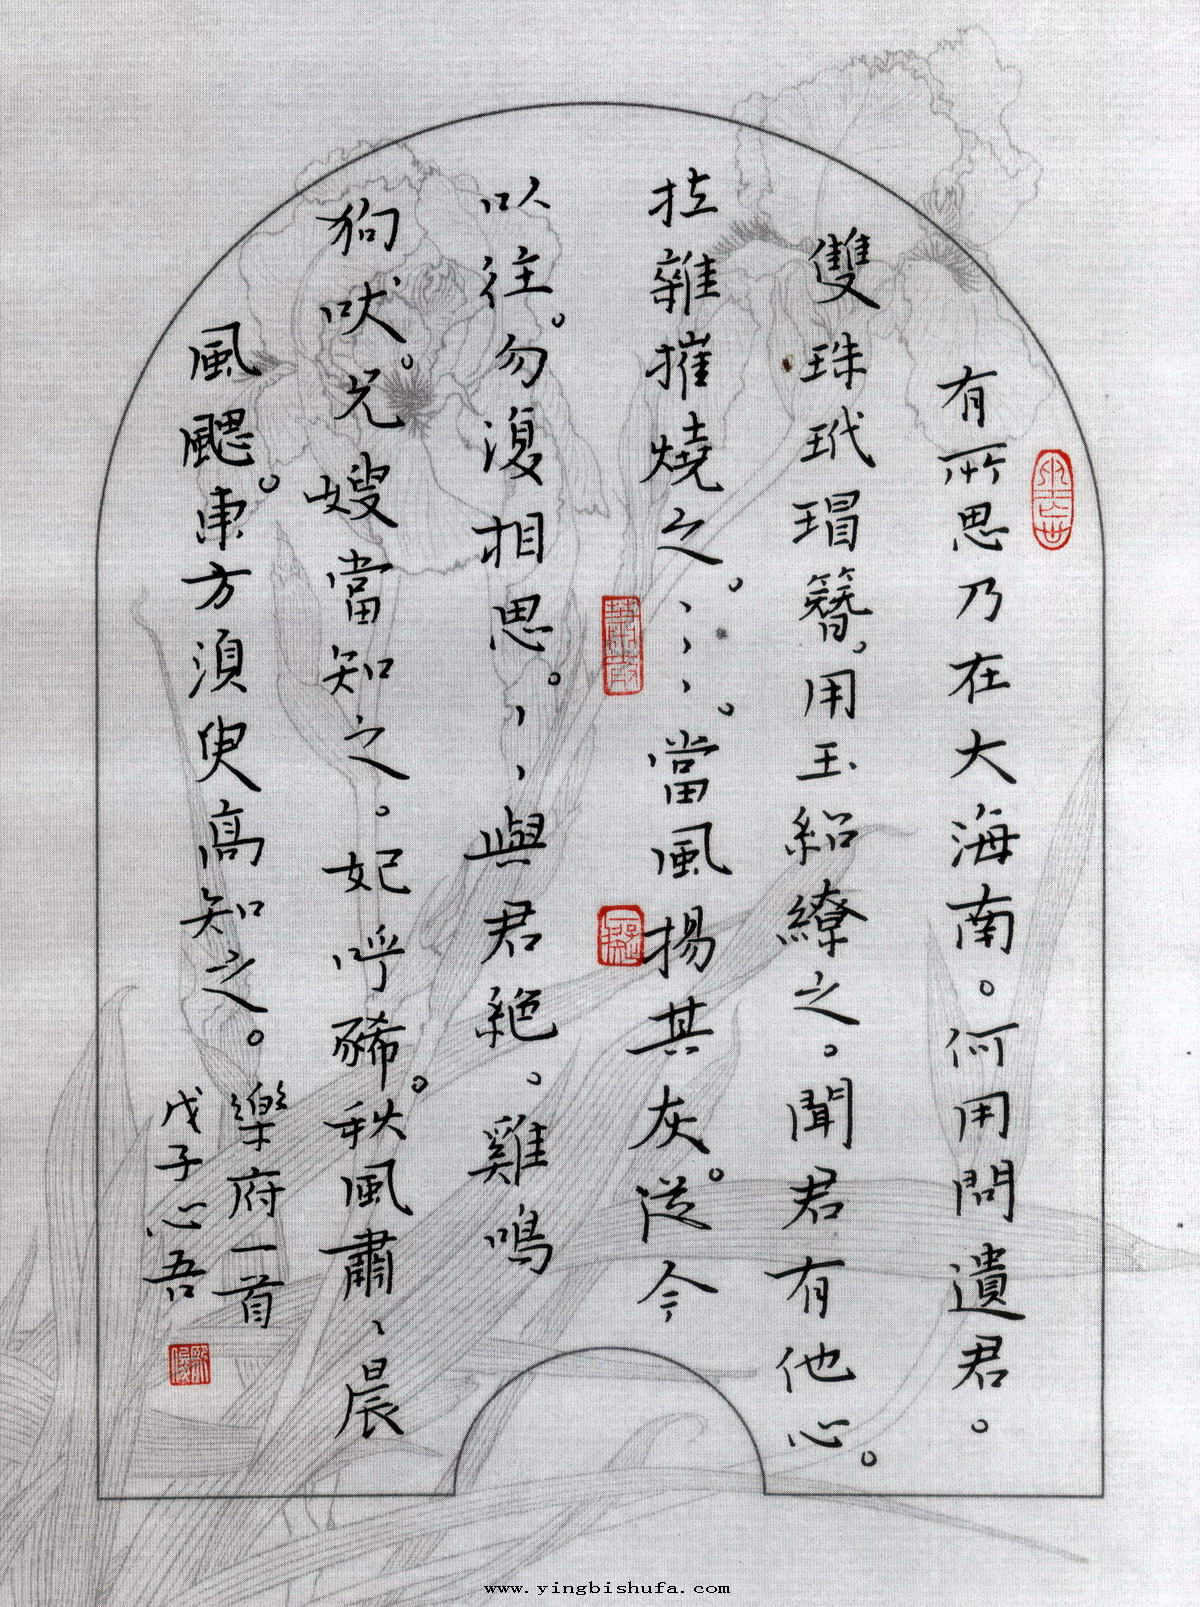 有所思乃在大海南。何用問遺君。
雙珠玳瑁簪。用玉紹繚之。聞君有他心。
拉雜摧燒之。、、、。當風揚其灰。従今
以往。勿復相思。、、與君絶。雞鳴
狗吠。兄嫂當知之。妃呼豨。秋風肅、晨
風颸。東方須臾高知之。
樂府一首
戊子心吾
www.yingbishufa.com